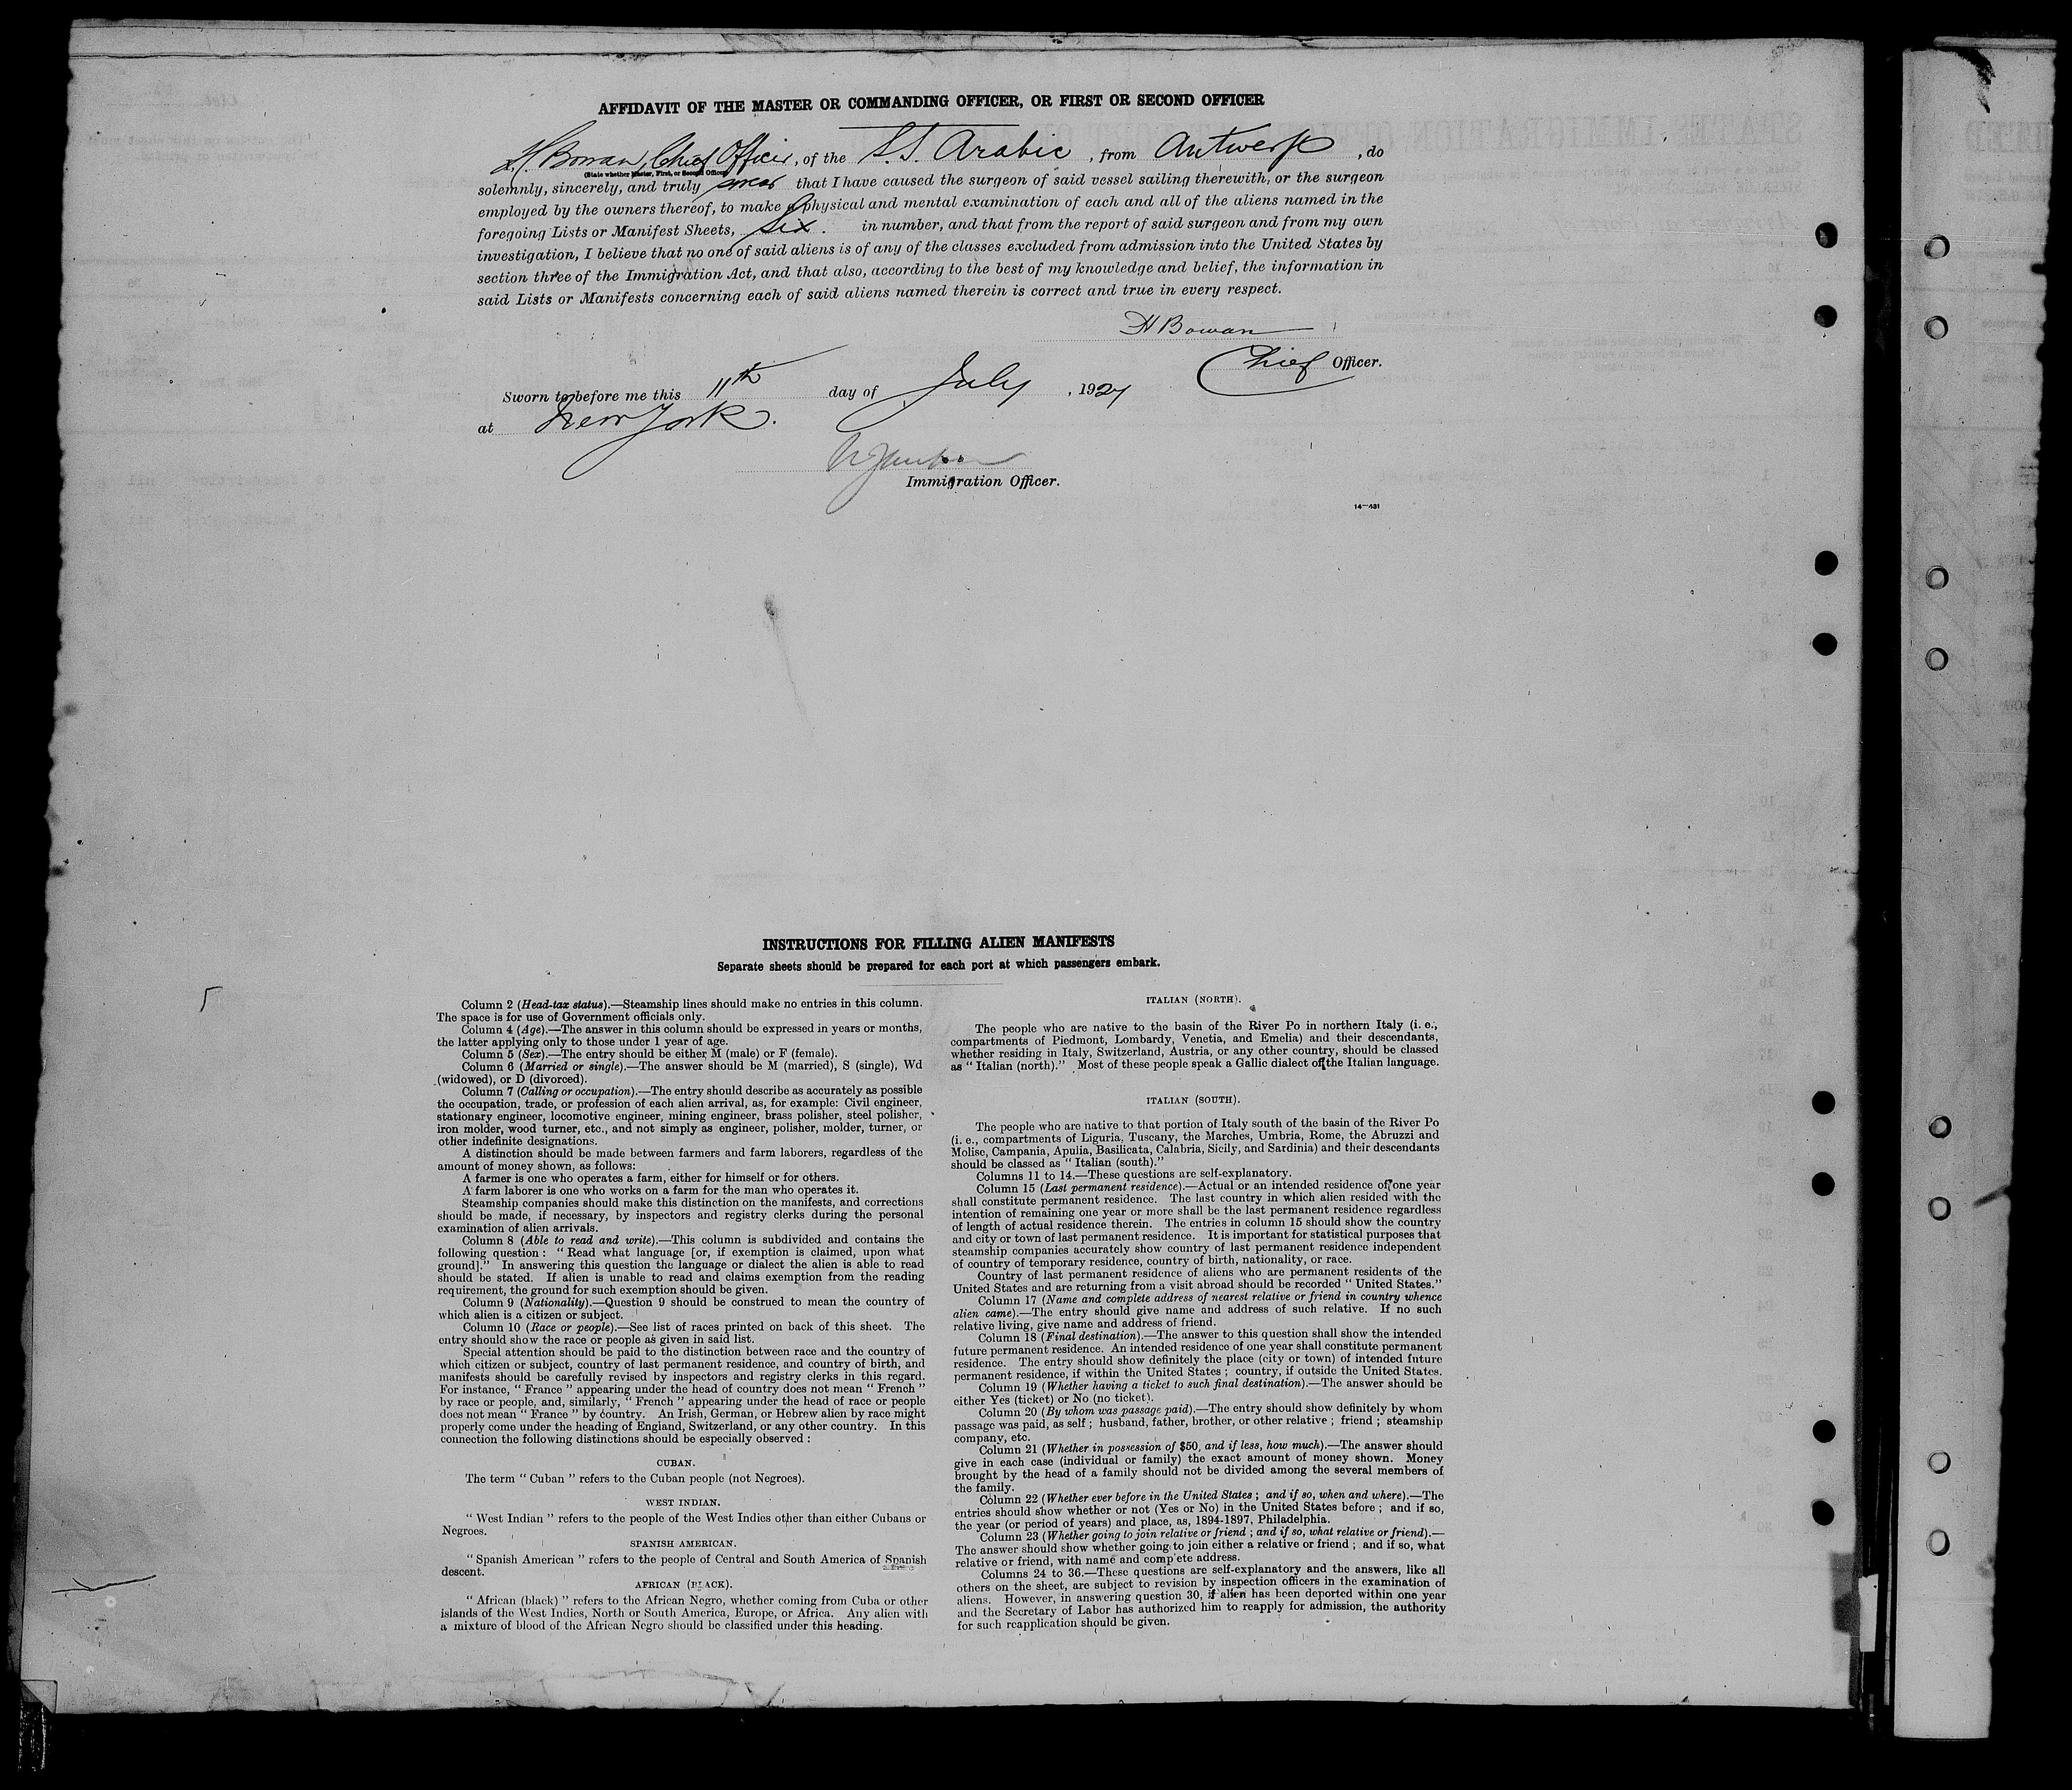 AFFIDAVIT OF THE MASTER OR COMMANDING OFFICER, OR FIRST OR SECOND OFFICER
H. Bowan, Chief Officer, of the S.S. Arabic, from Antwerp, do
(State whether Master, First, or Second Officer)
solemnly, sincerely, and truly swear that I have caused the surgeon of said vessel sailing therewith, or the surgeon
employed by the owners thereof, to make a physical and mental examination of each and all of the aliens named in the
foregoing Lists or Manifest Sheets, Six. in number, and that from the report of said surgeon and from my own
investigation, I believe that no one of said aliens is of any of the classes excluded from admission into the United States by
section three of the Immigration Act, and that also, according to the best of my knowledge and belief, the information in
said Lists or Manifests concerning each of said aliens named therein is correct and true in every respect.
H Bowan
Chief Officer.
Sworn to before me this 11th day of July, 1927
at New York.
Immigration Officer.
14—431
INSTRUCTIONS FOR FILLING ALIEN MANIFESTS
Separate sheets should be prepared for each port at which passengers embark.
Column 2 (Head-tax status).—Steamship lines should make no entries in this column.
The space is for use of Government officials only.
Column 4 (Age).—The answer in this column should be expressed in years or months,
the latter applying only to those under 1 year of age.
Column 5 (Sex).—The entry should be either M (male) or F (female).
Column 6 (Married or single).—The answer should be M (married), S (single), Wd
(widowed), or D (divorced).
Column 7 (Calling or occupation).—The entry should describe as accurately as possible
the occupation, trade, or profession of each alien arrival, as, for example: Civil engineer,
stationary engineer, locomotive engineer, mining engineer, brass polisher, steel polisher,
iron molder, wood turner, etc., and not simply as engineer, polisher, molder, turner, or
other indefinite designations.
A distinction should be made between farmers and farm laborers, regardless of the
amount of money shown, as follows:
A farmer is one who operates a farm, either for himself or for others.
A farm laborer is one who works on a farm for the man who operates it.
Steamship companies should make this distinction on the manifests, and corrections
should be made, if necessary, by inspectors and registry clerks during the personal
examination of alien arrivals.
Column 8 (Able to read and write).—This column is subdivided and contains the
following question: "Read what language [or, if exemption is claimed, upon what
ground]." In answering this question the language or dialect the alien is able to read
should be stated. If alien is unable to read and claims exemption from the reading
requirement, the ground for such exemption should be given.
Column 9 (Nationality).—Question 9 should be construed to mean the country of
which alien is a citizen or subject.
Column 10 (Race or people).—See list of races printed on back of this sheet. The
entry should show the race or people as given in said list.
Special attention should be paid to the distinction between race and the country of
which citizen or subject, country of last permanent residence, and country of birth, and
manifests should be carefully revised by inspectors and registry clerks in this regard.
For instance, "France" appearing under the head of country does not mean "French"
by race or people, and, similarly, "French" appearing under the head of race or people
does not mean "France" by country. An Irish, German, or Hebrew alien by race might
properly come under the heading of England, Switzerland, or any other country. In this
connection the following distinctions should be especially observed:
CUBAN.
The term "Cuban" refers to the Cuban people (not Negroes).
WEST INDIAN.
"West Indian" refers to the people of the West Indies other than either Cubans or
Negroes.
SPANISH AMERICAN.
"Spanish American" refers to the people of Central and South America of Spanish
descent.
AFRICAN (BLACK).
"African (black)" refers to the African Negro, whether coming from Cuba or other
islands of the West Indies, North or South America, Europe, or Africa. Any alien with
a mixture of blood of the African Negro should be classified under this heading.
ITALIAN (NORTH).
The people who are native to the basin of the River Po in northern Italy (i. e.,
compartments of Piedmont, Lombardy, Venetia, and Emelia) and their descendants,
whether residing in Italy, Switzerland, Austria, or any other country, should be classed
as "Italian (north)." Most of these people speak a Gallic dialect of the Italian language.
ITALIAN (SOUTH).
The people who are native to that portion of Italy south of the basin of the River Po
(i. e., compartments of Liguria, Tuscany, the Marches, Umbria, Rome, the Abruzzi and
Molise, Campania, Apulia, Basilicata, Calabria, Sicily, and Sardinia) and their descendants
should be classed as "Italian (south)."
Columns 11 to 14.—These questions are self-explanatory.
Column 15 (Last permanent residence).—Actual or an intended residence of one year
shall constitute permanent residence. The last country in which alien resided with the
intention of remaining one year or more shall be the last permanent residence regardless
of length of actual residence therein. The entries in column 15 should show the country
and city or town of last permanent residence. It is important for statistical purposes that
steamship companies accurately show country of last permanent residence independent
of country of temporary residence, country of birth, nationality, or race.
Country of last permanent residence of aliens who are permanent residents of the
United States and are returning from a visit abroad should be recorded "United States."
Column 17 (Name and complete address of nearest relative or friend in country whence
alien came).—The entry should give name and address of such relative. If no such
relative living, give name and address of friend.
Column 18 (Final destination).—The answer to this question shall show the intended
future permanent residence. An intended residence of one year shall constitute permanent
residence. The entry should show definitely the place (city or town) of intended future
permanent residence, if within the United States; country, if outside the United States.
Column 19 (Whether having a ticket to such final destination).—The answer should be
either Yes (ticket) or No (no ticket).
Column 20 (By whom was passage paid).—The entry should show definitely by whom
passage was paid, as self; husband, father, brother, or other relative; friend; steamship
company, etc.
Column 21 (Whether in possession of $50, and if less, how much).—The answer should
give in each case (individual or family) the exact amount of money shown. Money
brought by the head of a family should not be divided among the several members of
the family.
Column 22 (Whether ever before in the United States; and if so, when and where).—The
entries should show whether or not (Yes or No) in the United States before; and if so,
the year (or period of years) and place, as, 1894-1897, Philadelphia.
Column 23 (Whether going to join relative or friend; and if so, what relative or friend).—
The answer should show whether going to join either a relative or friend; and if so, what
relative or friend, with name and complete address.
Columns 24 to 36.—These questions are self-explanatory and the answers, like all
others on the sheet, are subject to revision by inspection officers in the examination of
aliens. However, in answering question 30, if alien has been deported within one year
and the Secretary of Labor has authorized him to reapply for admission, the authority
for such reapplication should be given.